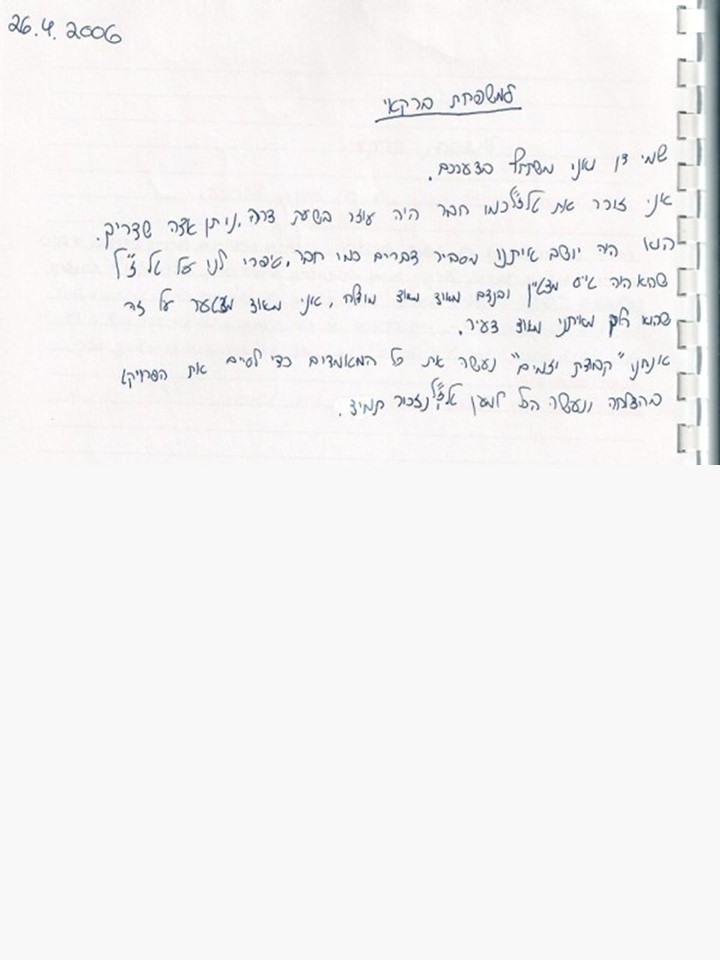 26.4.2006
למשפחת ברקאי
שמי דן ואני משתתף בצערכם.
אני זוכר את טל ז"ל כמו חבר היה עוזר בשעת צרה, ניתן עצה שצריך.
הוא היה יושב איתנו מסביר דברים כמו חבר, סיפרו לנו על טל ז"ל
שהוא היה טייס מצטיין ובנדם מאוד מאוד מוצלח, אני מאוד מצטער על זה
שהוא הלך מאיתנו מאוד צעיר.
אנחנו "קבוצת יזמים" נעשה את כל המאמצים כדי לסיים את הפרויקט
בהצלחה ונעשה הכל למען טל ז"ל נזכור תמיד.